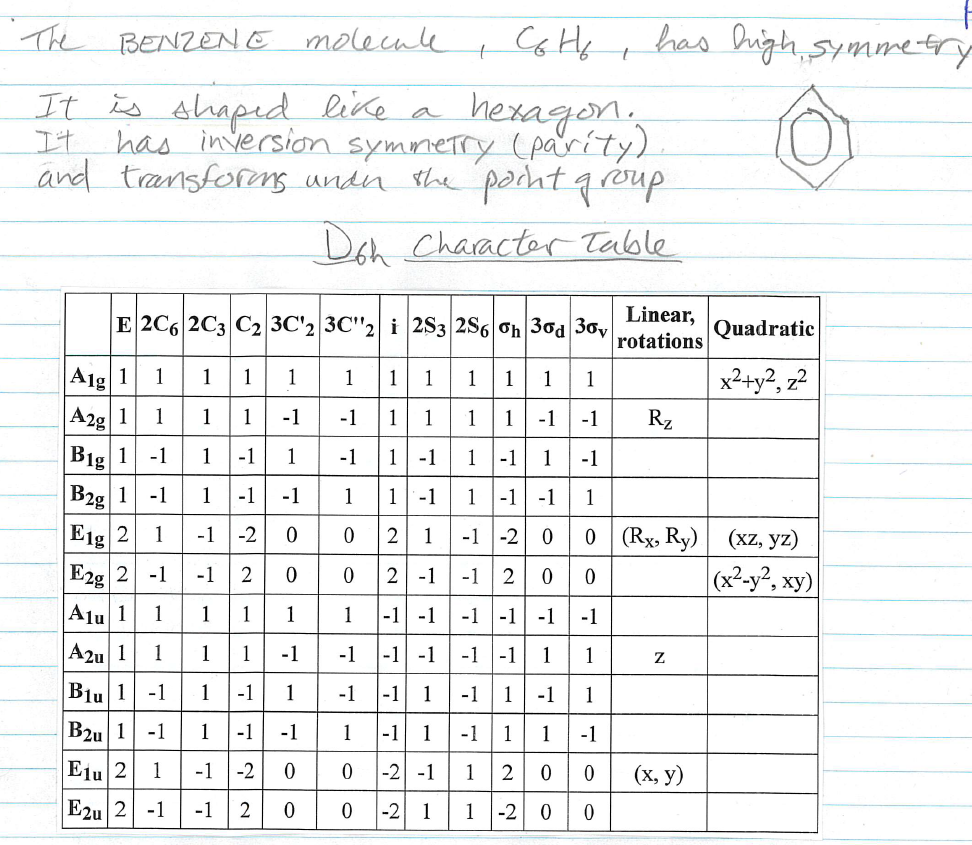 The BENZENE molecule, C6H6, has high symmetry
It is shaped like a hexagon.
It has inversion symmetry (parity)
and transforms under the point group
D6h Character Table
E 2C6 2C3 C2 3C'2 3C"2 i 2S3 2S6 σh 3σd 3σv Linear, rotations Quadratic
A1g 1 1 1 1 1 1 1 1 1 1 1 1 x²+y², z²
A2g 1 1 1 1 -1 -1 1 1 1 1 -1 -1 Rz
B1g 1 -1 1 -1 1 -1 1 -1 1 -1 1 -1
B2g 1 -1 1 -1 -1 1 1 -1 1 -1 -1 1
E1g 2 1 -1 -2 0 0 2 1 -1 -2 0 0 (Rx, Ry) (xz, yz)
E2g 2 -1 -1 2 0 0 2 -1 -1 2 0 0 (x²-y², xy)
A1u 1 1 1 1 1 1 -1 -1 -1 -1 -1 -1
A2u 1 1 1 1 -1 -1 -1 -1 -1 -1 1 1 z
B1u 1 -1 1 -1 1 -1 -1 1 -1 1 -1 1
B2u 1 -1 1 -1 -1 1 -1 1 -1 1 1 -1
E1u 2 1 -1 -2 0 0 -2 -1 1 2 0 0 (x, y)
E2u 2 -1 -1 2 0 0 -2 1 1 -2 0 0